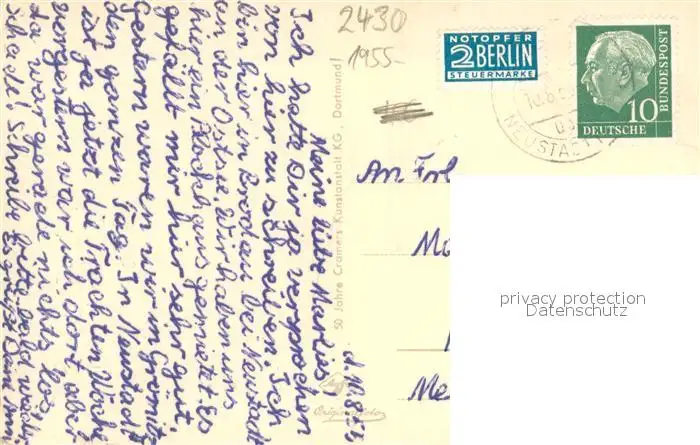 2430
1955-
NOTOPFER
2 BERLIN
STEUERMARKE
10
DEUTSCHE
BUNDESPOST
NEUSTADT
An Frl
Me
privacy protection
Datenschutz
50 Jahre Cramers Kunstanstalt KG., Dortmund
Original-foto
Meine liebe Marlis!
Ich hatte Dir ja versprochen
von hier zu schreiben. Ich
bin hier in Brodau bei Neustadt
an der Ostsee. Wir haben uns
hier ein gemietet. Es
gefällt mir hier sehr gut.
Gestern waren wir in Grömitz
den ganzen Tag. In Neustadt
ist ja jetzt die Trachten Woche
vorgestern war ich dort aber
da war gerade nichts los,
schade! Schreibe bitte bald wieder